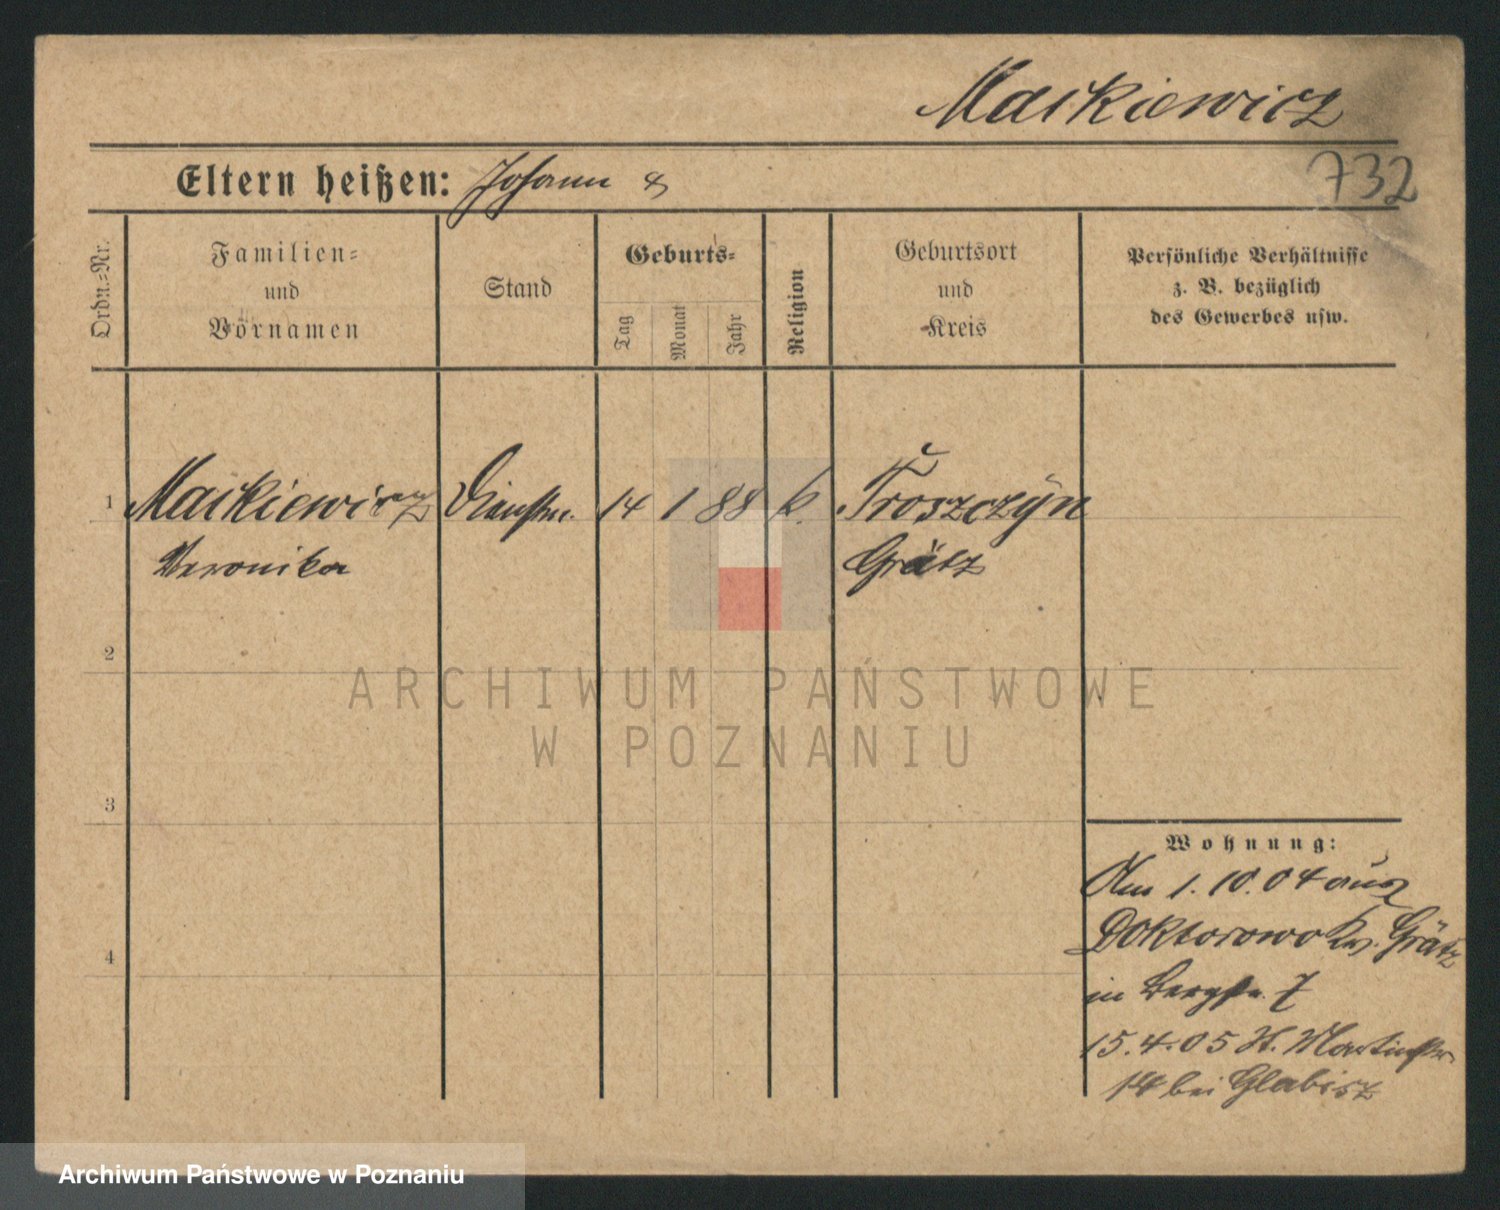 Maikiewicz
732
Eltern heißen: Johann &
Ordn.-Nr.
Familien-
und
Vornamen
Stand
Geburts-
Tag
Monat
Jahr
Religion
Geburtsort
und
Kreis
Persönliche Verhältnisse
z. B. bezüglich
des Gewerbes usw.
1 Maikiewicz Dienstm. 14 1 88 k. Troszczyn
Veronika Grätz
2
ARCHIWUM PAŃSTWOWE
W POZNANIU
3
Wohnung:
Am 1.10.04 aus
Doktorowo Kr. Grätz
4
in Bergstr. 7
15.4.05 St. Martinstr.
14 bei Glabisz
Archiwum Państwowe w Poznaniu